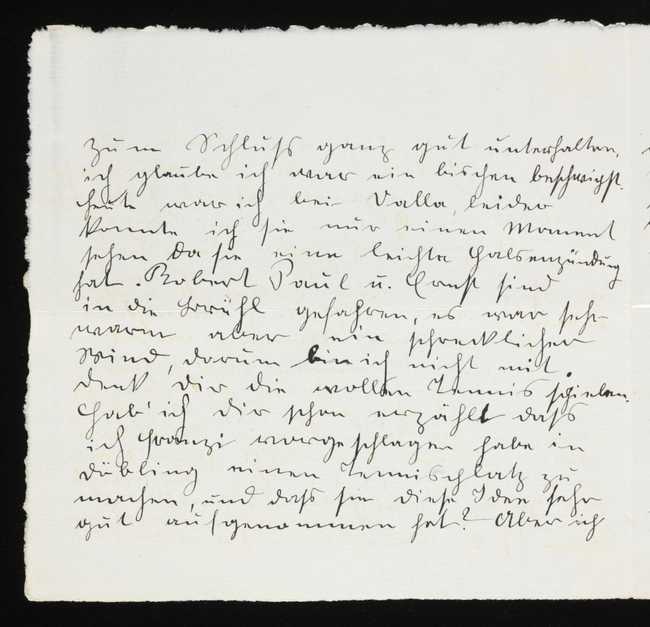 zum Schluss ganz gut unterhalten,
ich glaube ich war ein bischen beschwigst.
Heute war ich bei Valla, leider
konnte ich sie nur einen Moment
sehen da sie eine leichte Halsenzündung
hat. Robert Paul u. Ernst sind
in die Brühl gefahren, es war sehr
warm aber ein schrecklicher
Wind, darum bin ich nicht mit.
Denk dir die wollen Tennis spielen.
Hab' ich dir schon erzählt dass
ich Franzi vorgeschlagen habe in
Döbling einen Tennisplatz zu
machen, und dass sie diese Idee sehr
gut aufgenommen hat? Aber ich